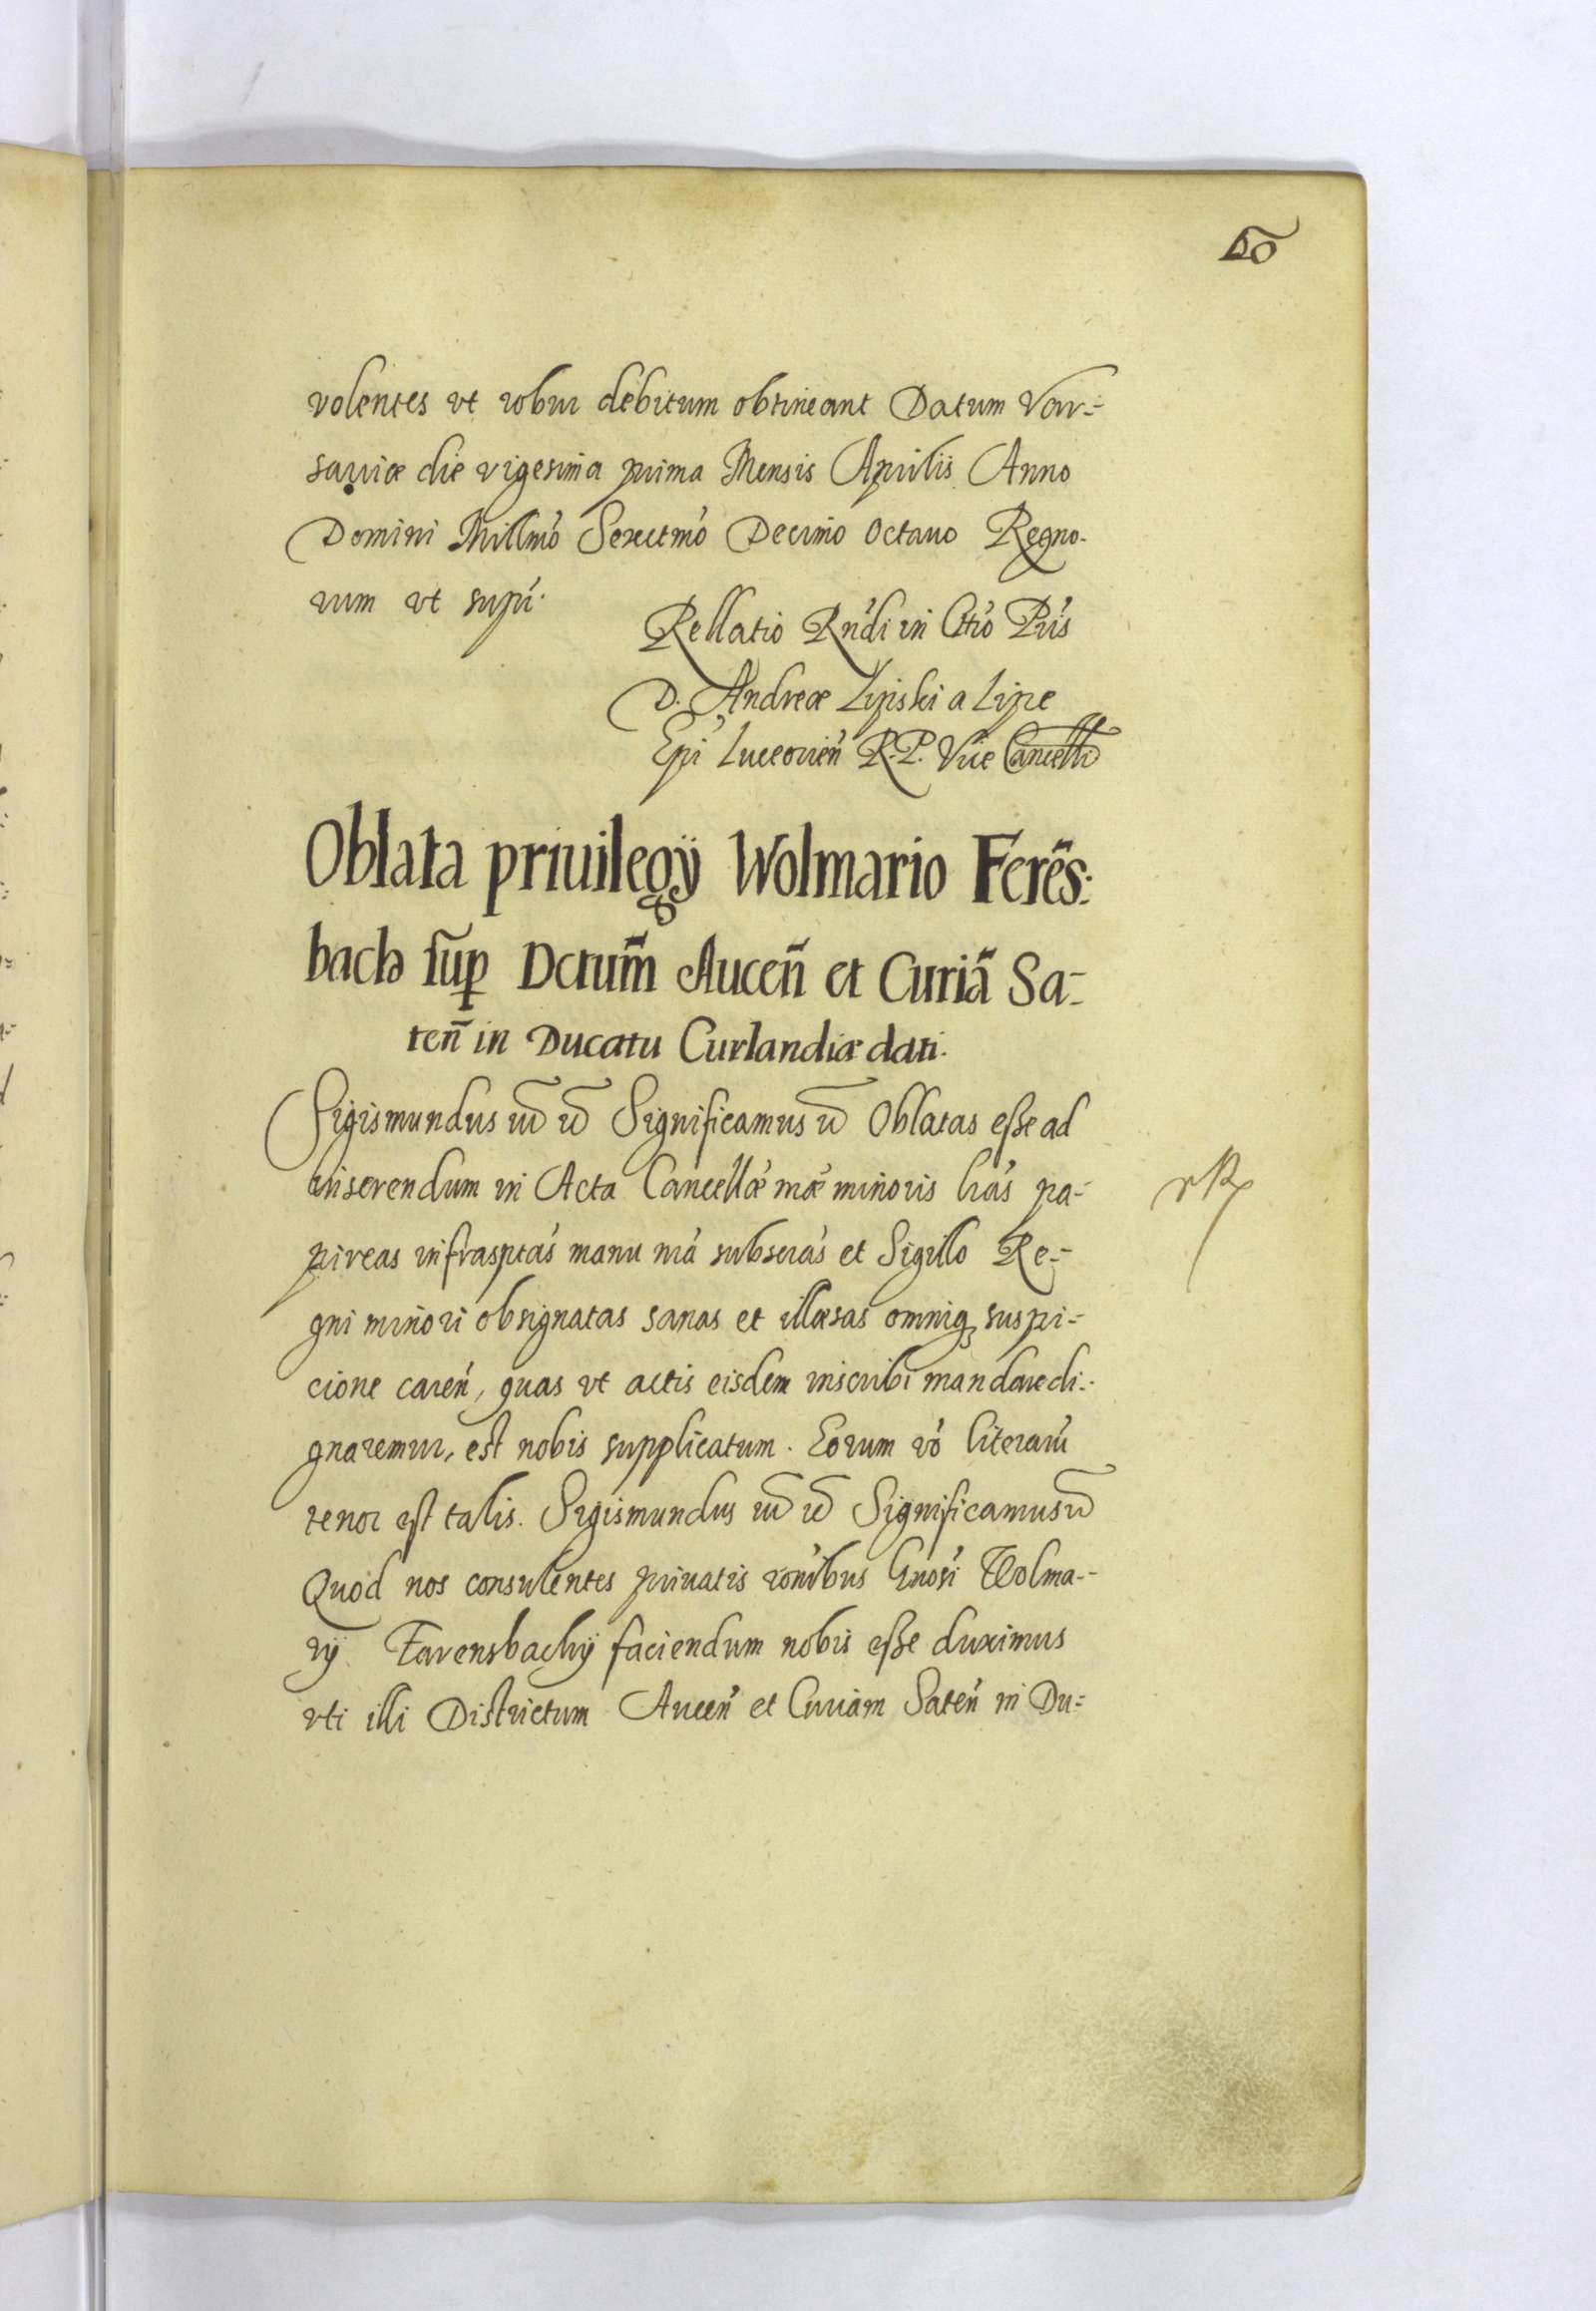 60
volentes vt robur debitum obtineant Datum Var-
sauiæ die vigesima prima Mensis Aprilis Anno
Domini Millmo Sexctmo Decimo Octauo Regno-
rum vt supr.
Rellatio Rndi in Chro Pris
D. Andreæ Lipski a Lipe
Epi Luceorien R. P. Vice Cancellr
Oblata priuilegÿ Wolmario Ferēs:
bach sup Dctum̃ Aucen̄ et Curiā Sa-
ten̄ in Ducatu Curlandiæ dati.
Sigismundus Significamus Oblatas esse ad
inserendum in Acta Cancellæ næ minoris lras pa-
pireas infrasptas manu nra subscras et Sigillo Re-
gni minori obsignatas sanas et illæsas omniq suspi-
cione caren, quas vt actis eisdem inscribi mandare di-
gnaremur, est nobis supplicatum. Eorum vo literaru
tenor est talis. Sigismundus Significamus
Quod nos consulentes priuatis ronibus Gnosi Wolma-
rij Farensbachij faciendum nobis esse duximus
vti illi Districtum Aucen et Curiam Saten in Du-